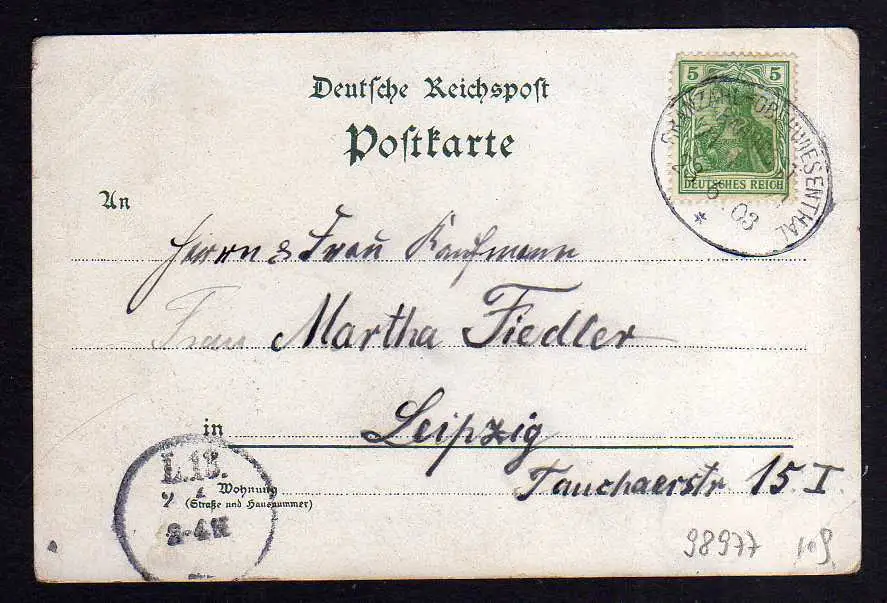 Deutsche Reichspost
Postkarte
5 5
DEUTSCHES REICH
CRANZAHL-OBERWIESENTHAL
03
An
Herrn & Frau Kaufmann
Frau Martha Fiedler
in Leipzig
L.13.
Wohnung
(Straße und Hausnummer)
Tauchaerstr 15 I.
2-4N
98977